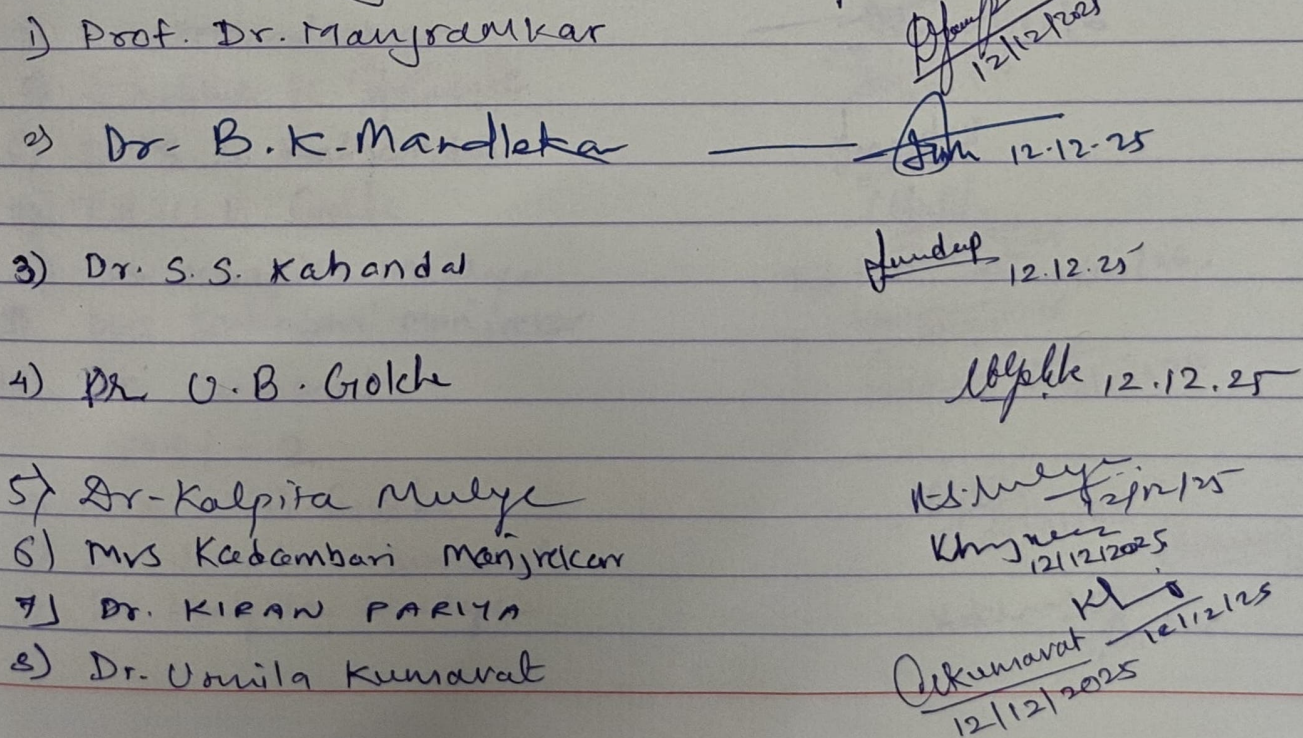 1) Prof. Dr. Manjramkar 12/12/2025
2) Dr. B.K. Mandlekar 12.12.25
3) Dr. S. S. Kahandal 12.12.25
4) Dr U.B. Golche 12.12.25
5) Dr. Kalpita Mulye K.S.Mulye 12/12/25
6) Mrs Kadambari Manjrekar 12/12/2025
7) Dr. KIRAN PARIYA 12/12/25
8) Dr. Urmila Kumavat Ukumavat
12/12/2025